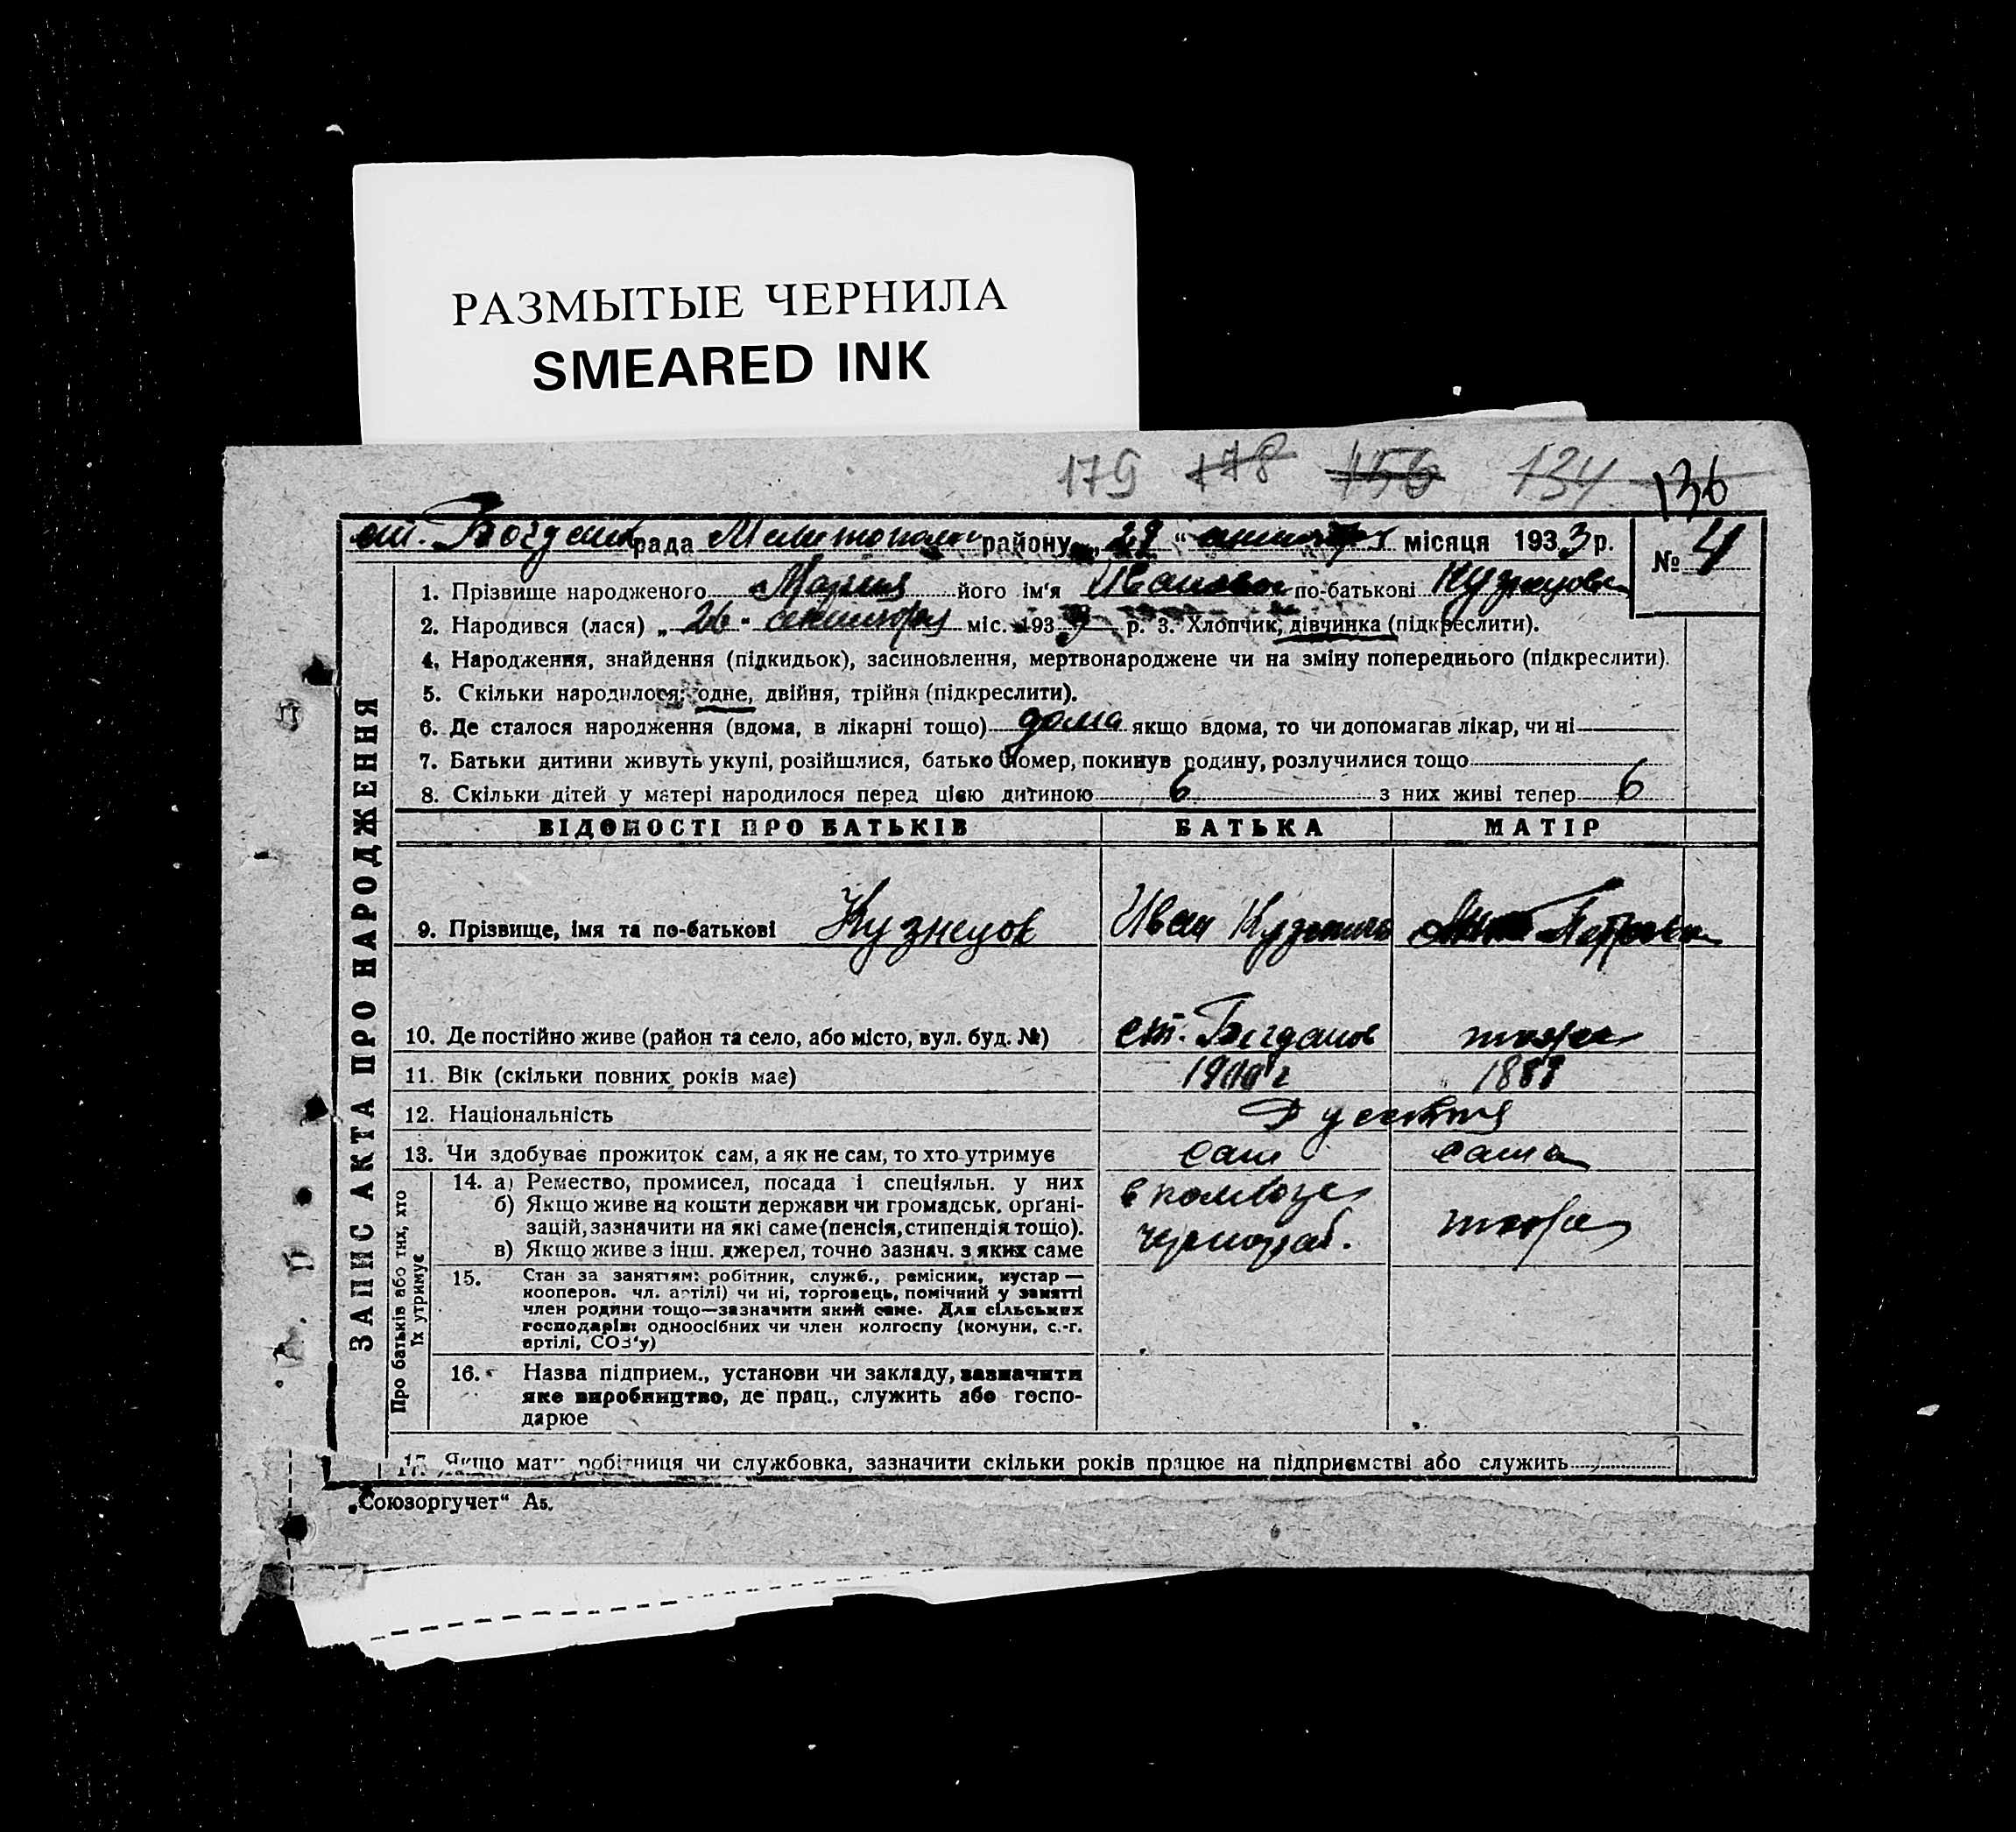 РАЗМЫТЫЕ ЧЕРНИЛА
SMEARED INK
179 178 156 134 136
ст. Богданов рада Мелитополь району „28“ сентября місяця 1933 р.
№ 4
ЗАПИС АКТА ПРО НАРОДЖЕННЯ
1. Прізвище народженого Мария його ім'я Ивановна по-батькові Кузнецова
2. Народився (лася) „26“ сентября міс. 1933 р. 3. Хлопчик, дівчинка (підкреслити).
4. Народження, знайдення (підкидьок), засиновлення, мертвонароджене чи на зміну попереднього (підкреслити).
5. Скільки народилося: одне, двійня, трійня (підкреслити).
6. Де сталося народження (вдома, в лікарні тощо) дома якщо вдома, то чи допомагав лікар, чи ні
7. Батьки дитини живуть укупі, розійшлися, батько помер, покинув родину, розлучилися тощо
8. Скільки дітей у матері народилося перед цією дитиною 6 з них живі тепер 6
ВІДОМОСТІ ПРО БАТЬКІВ БАТЬКА МАТІР
9. Прізвище, імя та по-батькові Кузнецов Иван Кузьмич Петровна
10. Де постійно живе (район та село, або місто, вул. буд. №) ст. Богданов тоже
11. Вік (скільки повних років має)
12. Національність Русския
13. Чи здобуває прожиток сам, а як не сам, то хто утримує сам сама
Про батьків або тих, хто їх утримує
14. а) Ремество, промисел, посада і спеціяльн. у них
б) Якщо живе на кошти держави чи громадськ. орґані-
зацій, зазначити на які саме (пенсія, стипендія тощо).
в) Якщо живе з інш. джерел, точно зазнач. з яких саме
в колхозе
чернораб. тоже
15. Стан за заняттям: робітник, служб., ремісник, кустар —
кооперов. чл. артілі) чи ні, торговець, помічний у занятті
член родини тощо—зазначити який саме. Для сільських
господарів: одноосібних чи член колгоспу (комуни, с.-г.
артілі, СОЗ'у)
16. Назва підприєм., установи чи закладу, зазначити
яке виробництво, де прац., служить або госпо-
дарює
17. Якщо мати робітниця чи службовка, зазначити скільки років працює на підприємстві або служить
„Союзоргучет“ А5.